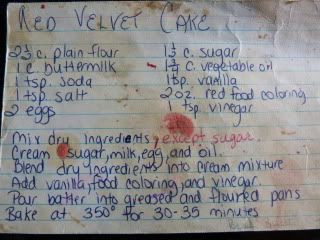 RED VELVET CAKE
2½ c. plain flour
1 c. buttermilk
1 tsp. soda
1 tsp. salt
2 eggs
1½ c. sugar
c. vegetable oil
1 tsp. vanilla
2 oz. red food coloring
1 tsp. vinegar
Mix dry ingredients, except sugar.
Cream sugar, milk, egg, and oil.
Blend dry ingredients into cream mixture
Add vanilla, food coloring, and vinegar.
Pour batter into greased and floured pans
Bake at 350° for 30-35 minutes